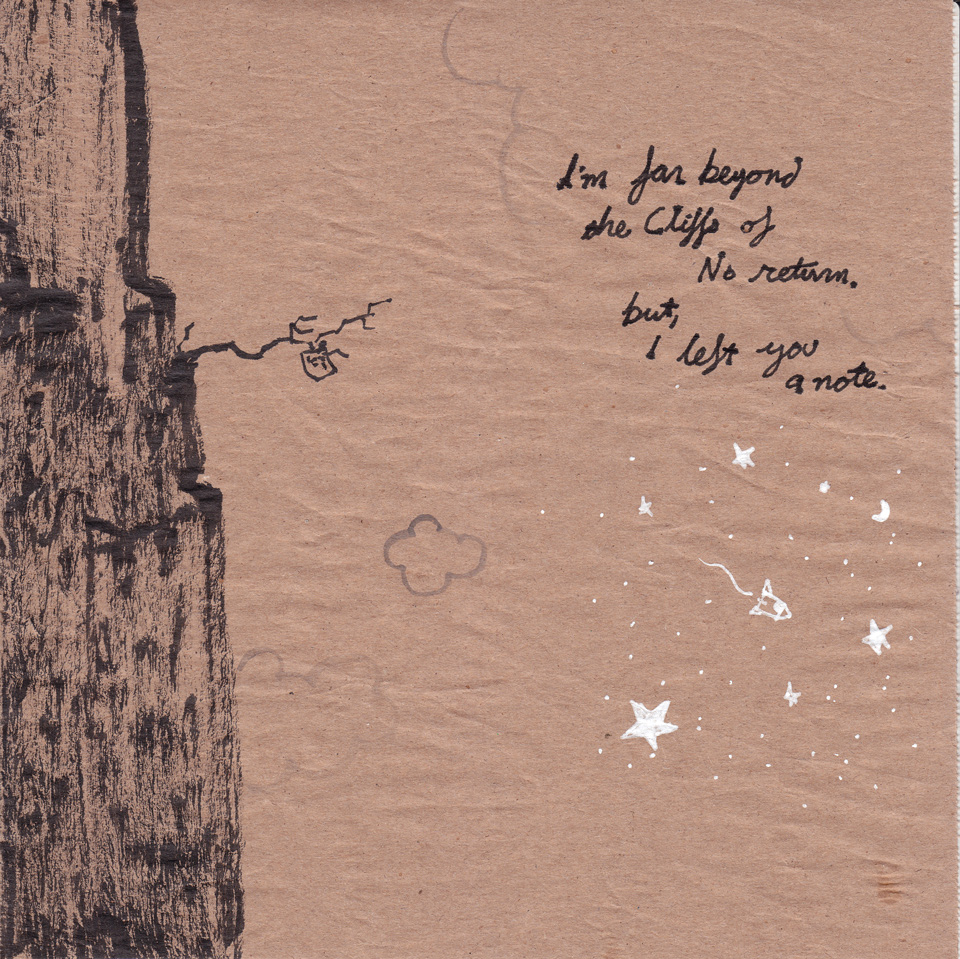 I'm far beyond
the Cliffs of
No return.
but,
I left you
a note.